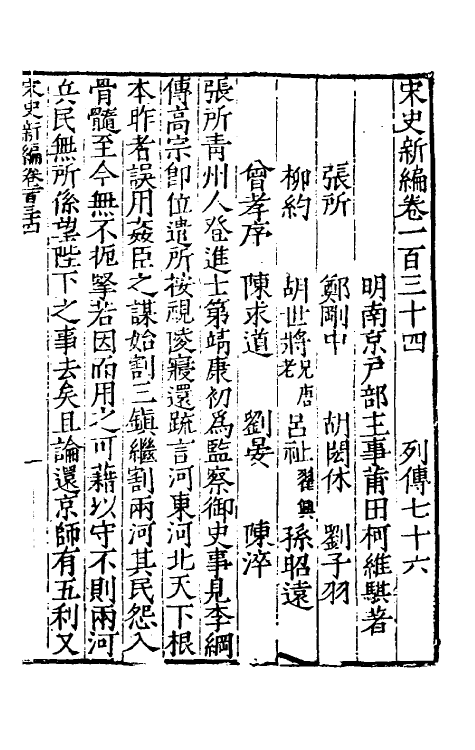 宋史新編卷一百三十四 列傳七十六
明南京戶部主事莆田柯維騏著
張所 鄭剛中 胡閎休 劉子羽
柳約 胡世將兄唐老 呂祉 翟興 孫昭遠
曾孝序 陳求道 劉晏 陳淬
張所青州人登進士第靖康初爲監察御史事見李綱
傳高宗卽位遣所按視陵寢還疏言河東河北天下根
本昨者誤用姦臣之謀始割三鎮繼割兩河其民怨入
骨髓至今無不扼擥若因而用之可藉以守不則兩河
兵民無所係望陛下之事去矣且論還京師有五利又
宋史新編卷一百三十四 一